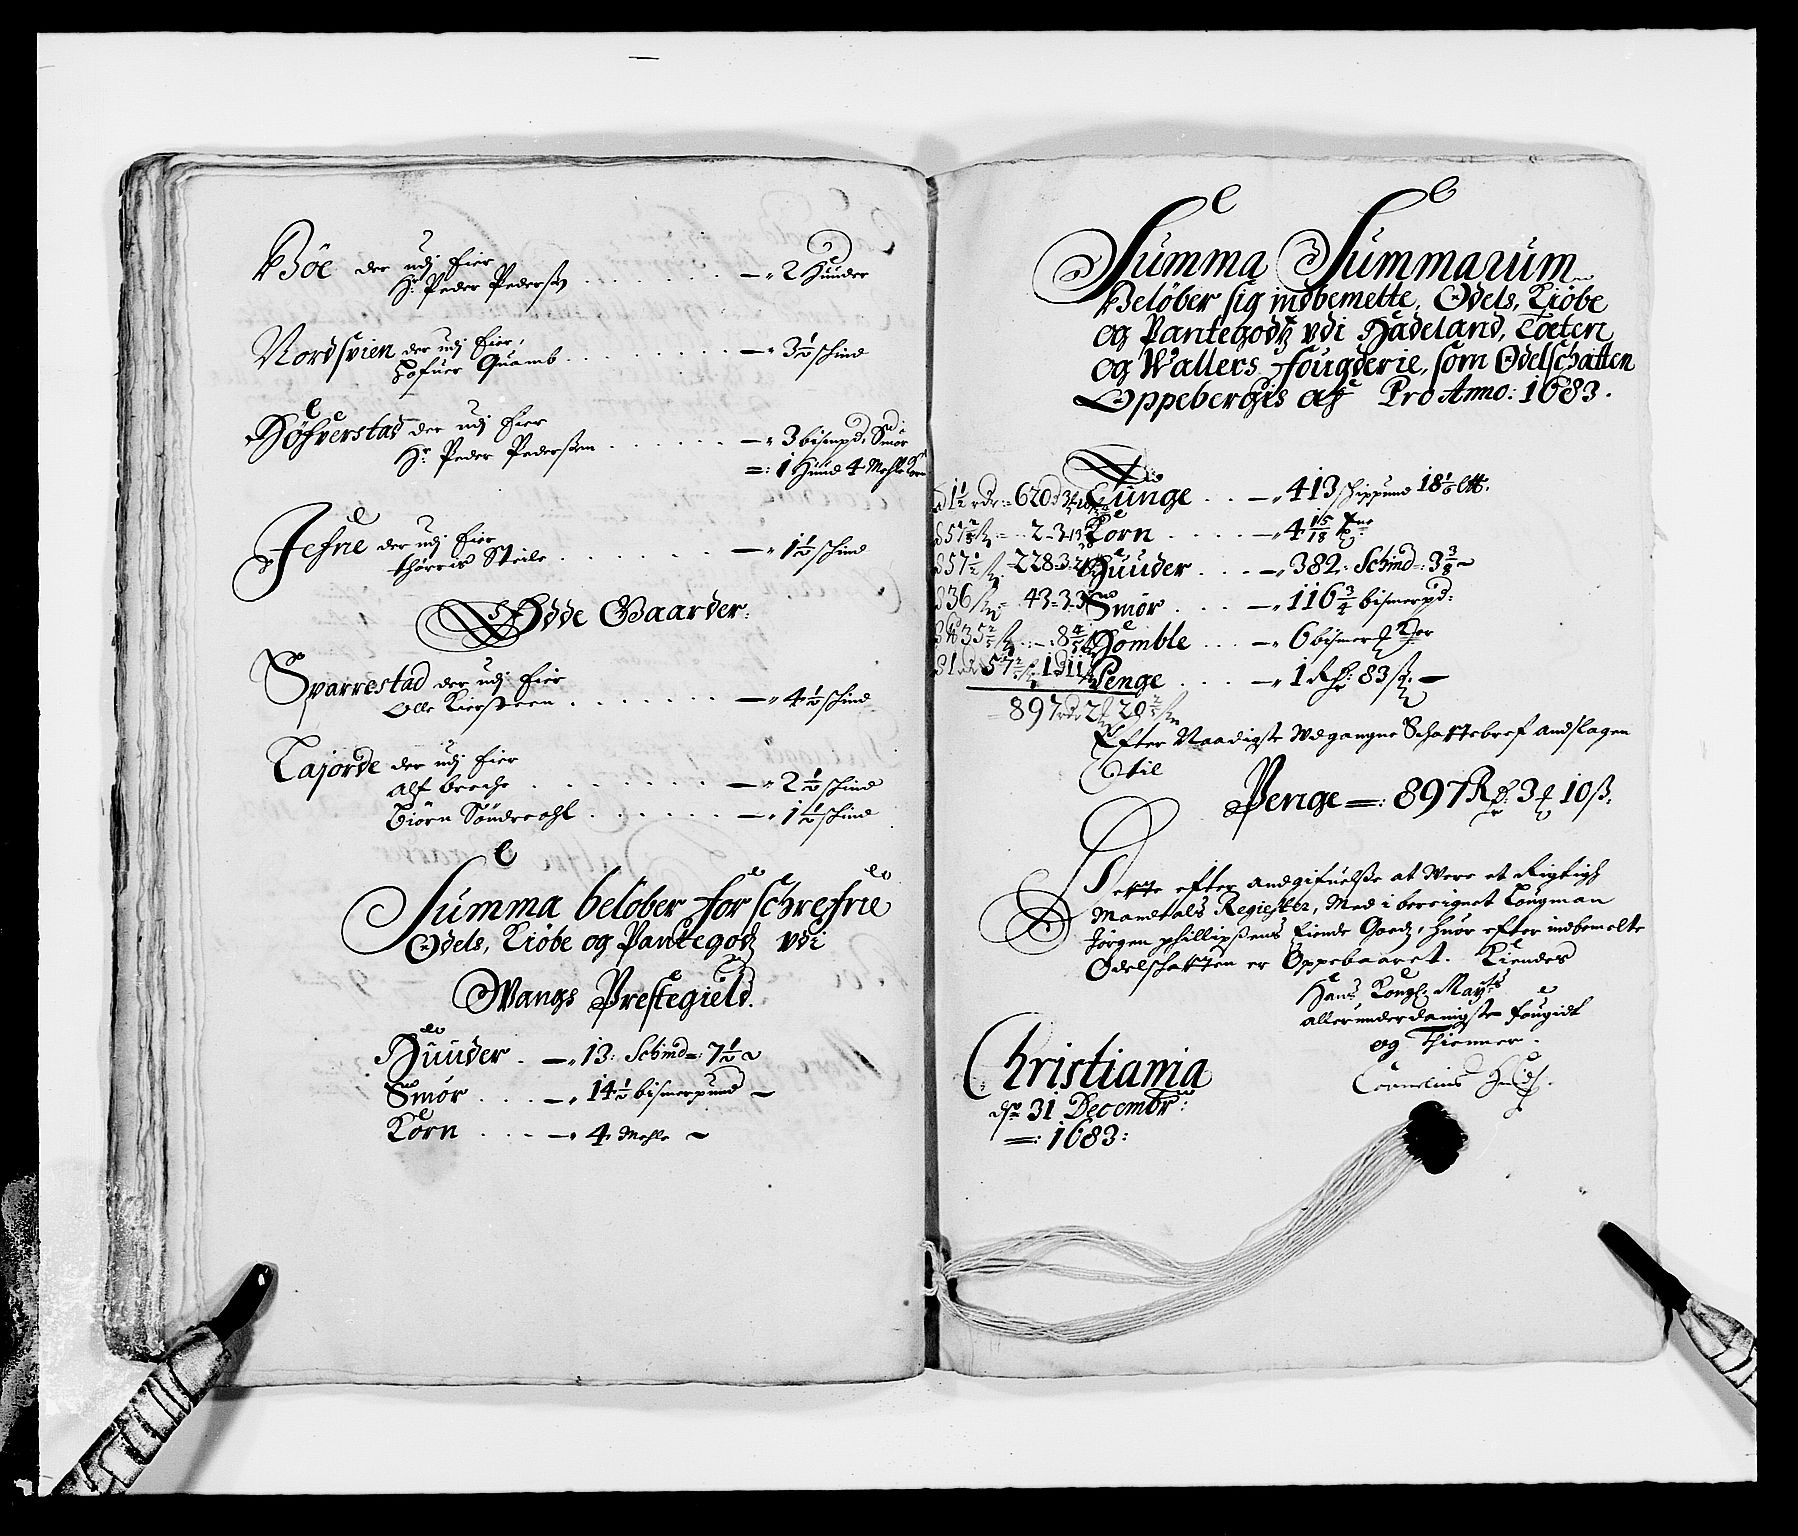 Böe der udj Eier
Hr: Peder Pederss: . . . . . . —„ 2 Huuder
Nordsvien der udj Eier,
Tofuer Quamb . . . . . . —„ 3½ schind
Höfverstad der udj Eier
Hr: Peder Pederssen . . . . . . —„ 3 bismpd: Smör
=: 1 Hund 4 Mehle Korn
Jefne der udj Eier
thorris Steile . . . . . . —„ 1½ schind
Ödde Gaarder:
Sparrestad der udj Eier
Olle Kiersteen . . . . . . —„ 4½ schind
Lajorde der udj Eier
Alf broche . . . . . . —„ 2½ schind
Biörn Söndreahl . . . . . . —„ 1½ schind
Summa belöber for schrefne
Odels, Kiöbe og Pantegodz vdi
Wangs Prestegield.
Huuder . —„ 13: Schind=: 7½ ~
Smör . . . —„ 14½ bismerpund ~
Korn . . . —„ 4 Mehle ~
Summa Summarum
Belöber sig indbemelte, Odels, Kiöbe
og Pantegodz vdi Hadeland, Toten
og Wallers fougderie, som Odelschatten
Oppebergis af Pro Anno: 1683.
Tunge . . —„ 413 schippund 18⅙ Lß.
Korn . . . . —„ 4 15/18 Tne
Huuder . . . —„ 382: Schind=: 3⅜ ~
Smör . . . —„ 116¾ bismerpd:
Homble . . . —„ 6 bismer
Penge . . . . —„ 1 Rhr: 83 ß. —
897 rdr 2
Efter Naadigste Udgangne Schattebref andslagen
til
Penge =: 897 Rdr: 3 10 ß.
Dette efter andgifuelsse at Were et Rigtigh
Mandtals Register, Med i bereignet Laugman
Jörgen phillipssens Eiende Goedz, huor efter indbemelte
Odelschatten er Oppebaaret. Kiendes
Hans Kongl: Mayts
allerunderdanigste fougidt
og Thienner.
Cornelius
Christiania
dn 31 Decembr:
=: 1683: